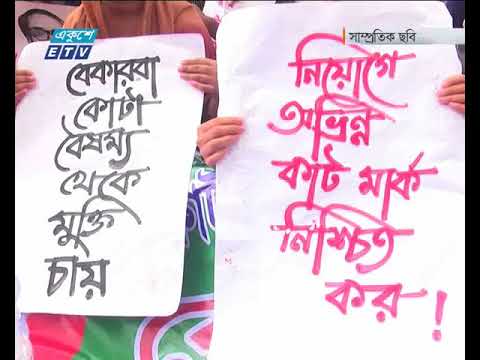 একুশে
ETV
সাম্প্রতিক ছবি
বেকাররা
কোটা
বৈষম্য
থেকে
মুক্তি
চায়
নিয়োগে
অভিন্ন
কাট মার্ক
নিশ্চিত
কর !